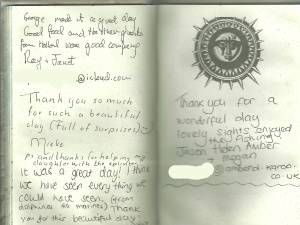 George made it a great day
Good food and the other guests
from Holland were good company
Ray & Janet
@icloud.com
Thank you so much
for such a beautiful
day (full of surprises)
Mieke
PS and thanks for helping my
daughter with the
It was a great day! I think
we have seen everything we
could have seen. (from
dolphins to marines) Thank
you for this beautiful day.
Thank you for a
wonderful day
lovely sights enjoyed
the fishing
Jason Helen Amber
Megan
co.uk